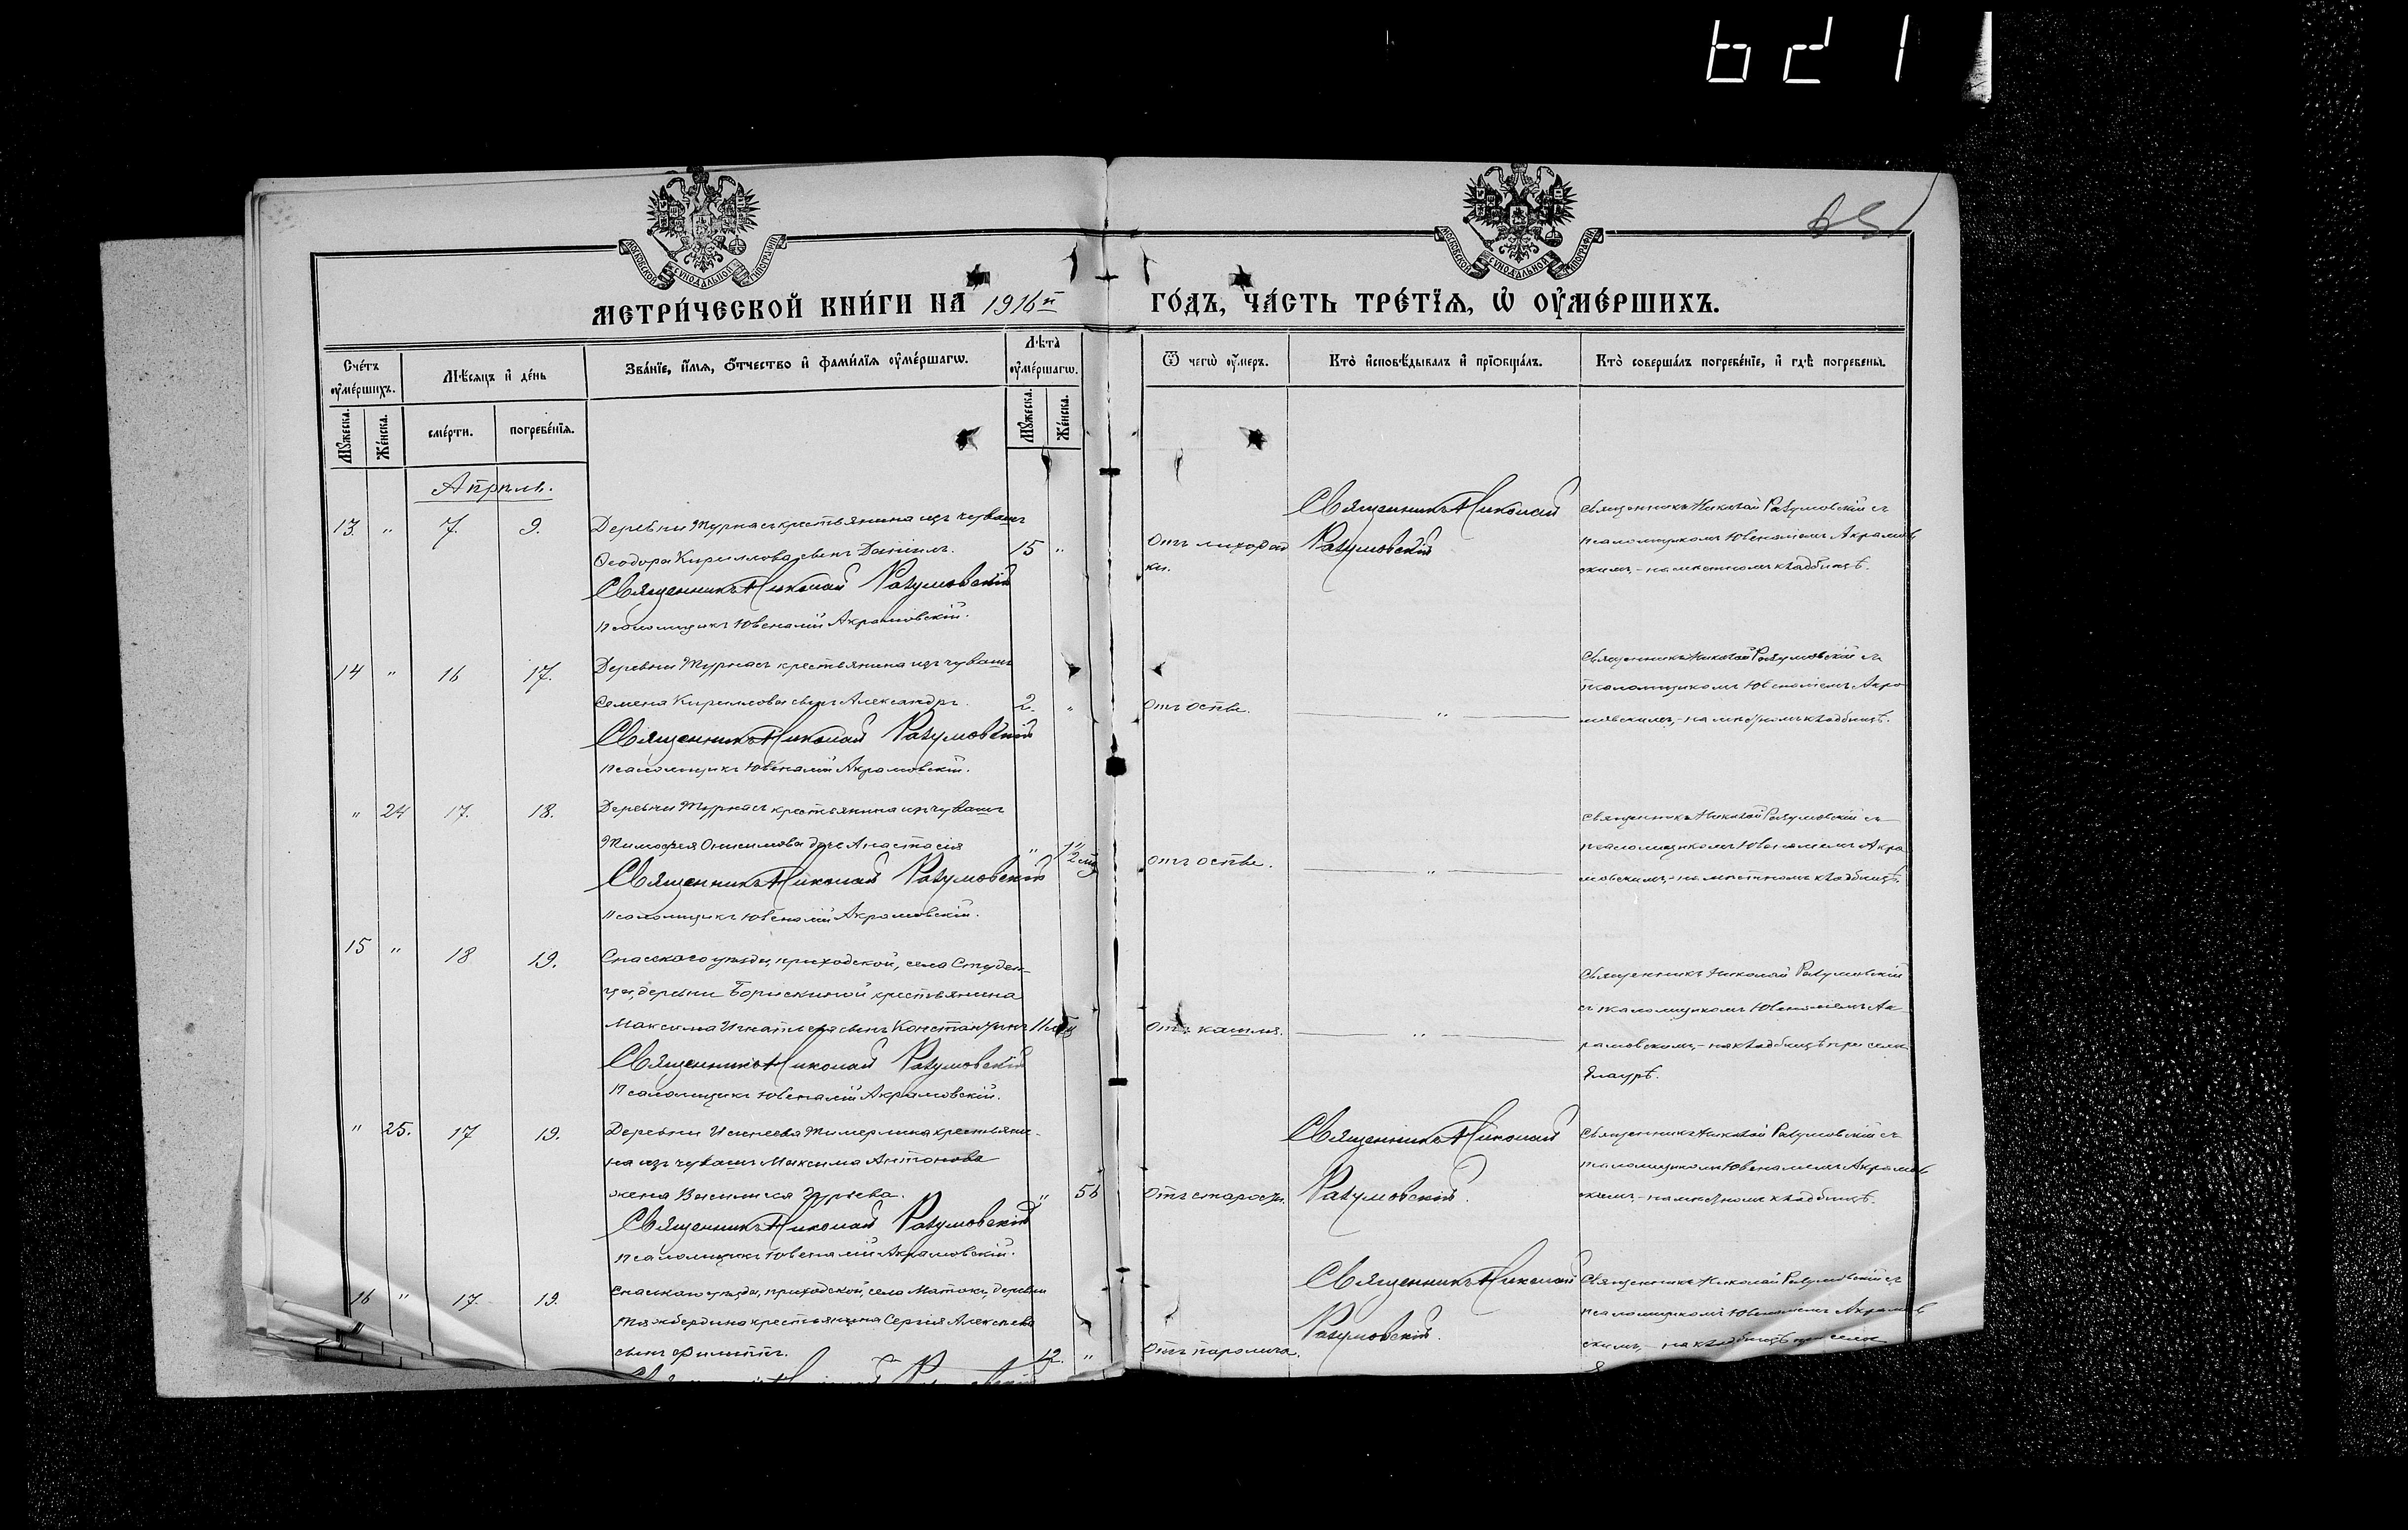 МОСКОВСКОЙ СѴНОДАЛЬНОЙ ТИПОГРАФІИ
МОСКОВСКОЙ СѴНОДАЛЬНОЙ ТИПОГРАФІИ
МЕТРИ́ЧЕСКОЙ КНИ́ГИ НА 1916й ГО́ДЪ, ЧА́СТЬ ТРЕ́ТЇѦ, Ѽ ОУ҆МЕ́РШИХЪ.
Сче́тъ оу҆ме́ршихъ.
Мꙋ́жеска.
Же́нска.
Мѣ́сяцъ и҆ де́нь
сме́рти.
погребе́нїѧ.
Зва́нїе, и҆́мѧ, ѻ҆́тчество и҆ фами́лїѧ оу҆ме́ршагѡ.
Лѣ́та оу҆ме́ршагѡ.
Мꙋ́жеска.
Же́нска.
Ѿ чегѡ̀ оу҆́меръ.
Кто̀ и҆сповѣ́дывалъ и҆ прїѻбща́лъ.
Кто̀ соверша́лъ погребе́нїе, и҆ гдѣ̀ погребены̀.
Апрѣль.
13. " 7. 9.
Деревни Турнасъ крестьянина изъ чувашъ
Ѳеодора Кириллова сынъ Даніилъ. 15 "
Священникъ Николай Разумовскій
Псаломщикъ Ювеналій Акрамовскій.
Отъ лихорад
ки.
Священникъ Николай
Разумовскій
Священникъ Николай Разумовскій съ
псаломщикомъ Ювеналіемъ Акрамов
скимъ,- на мѣстномъ кладбищѣ.
14 " 16 17.
Деревни Турнасъ крестьянина изъ чувашъ
Семена Кириллова сынъ Александръ. 2. "
Священникъ Николай Разумовскій
Псаломщикъ Ювеналій Акрамовскій.
Отъ оспы.
"
Священникъ Николай Разумовскій съ
псаломщикомъ Ювеналіемъ Акра
мовскимъ,- на мѣстномъ кладбищѣ.
" 24 17. 18.
Деревни Турнасъ крестьянина изъ чувашъ
Тимоѳея Онисимова дочь Анастасія "
Священникъ Николай Разумовскій
Псаломщикъ Ювеналій Акрамовскій.
отъ оспы.
"
Священникъ Николай Разумовскій съ
псаломщикомъ Ювеналіемъ Акра
мовскимъ,- на мѣстномъ кладбищѣ.
15 " 18 19.
Спасскаго уѣзда, приходской, села Студен-
ца, деревни Борискиной крестьянина
Максима Игнатьева сынъ Константинъ 11
Священникъ Николай Разумовскій
Псаломщикъ Ювеналій Акрамовскій.
Отъ кашля.
"
Священникъ Николай Разумовскій
съ псаломщикомъ Ювеналіемъ Ак-
рамовскимъ,- на кладбищѣ при селѣ
" 25. 17 19.
Деревни крестьяни-
на изъ чувашъ Максима Антонова
жена Василиса Гурьева. " 56
Священникъ Николай Разумовскій
Псаломщикъ Ювеналій Акрамовскій.
Отъ старости.
Священникъ Николай
Разумовскій.
Священникъ Николай Разумовскій съ
псаломщикомъ Ювеналіемъ Акрамов
скимъ,- на мѣстномъ кладбищѣ.
16 " 17. 19.
Спасскаго уѣзда, приходской, села Матакъ, деревни
Тяжбердина крестьянина Сергія Алексѣева
сынъ Филиппъ. 12. "
Отъ паралича.
Священникъ Николай
Разумовскій.
Священникъ Николай Разумовскій съ
псаломщикомъ Ювеналіемъ Акрамов
скимъ,- на кладбищѣ при селѣ